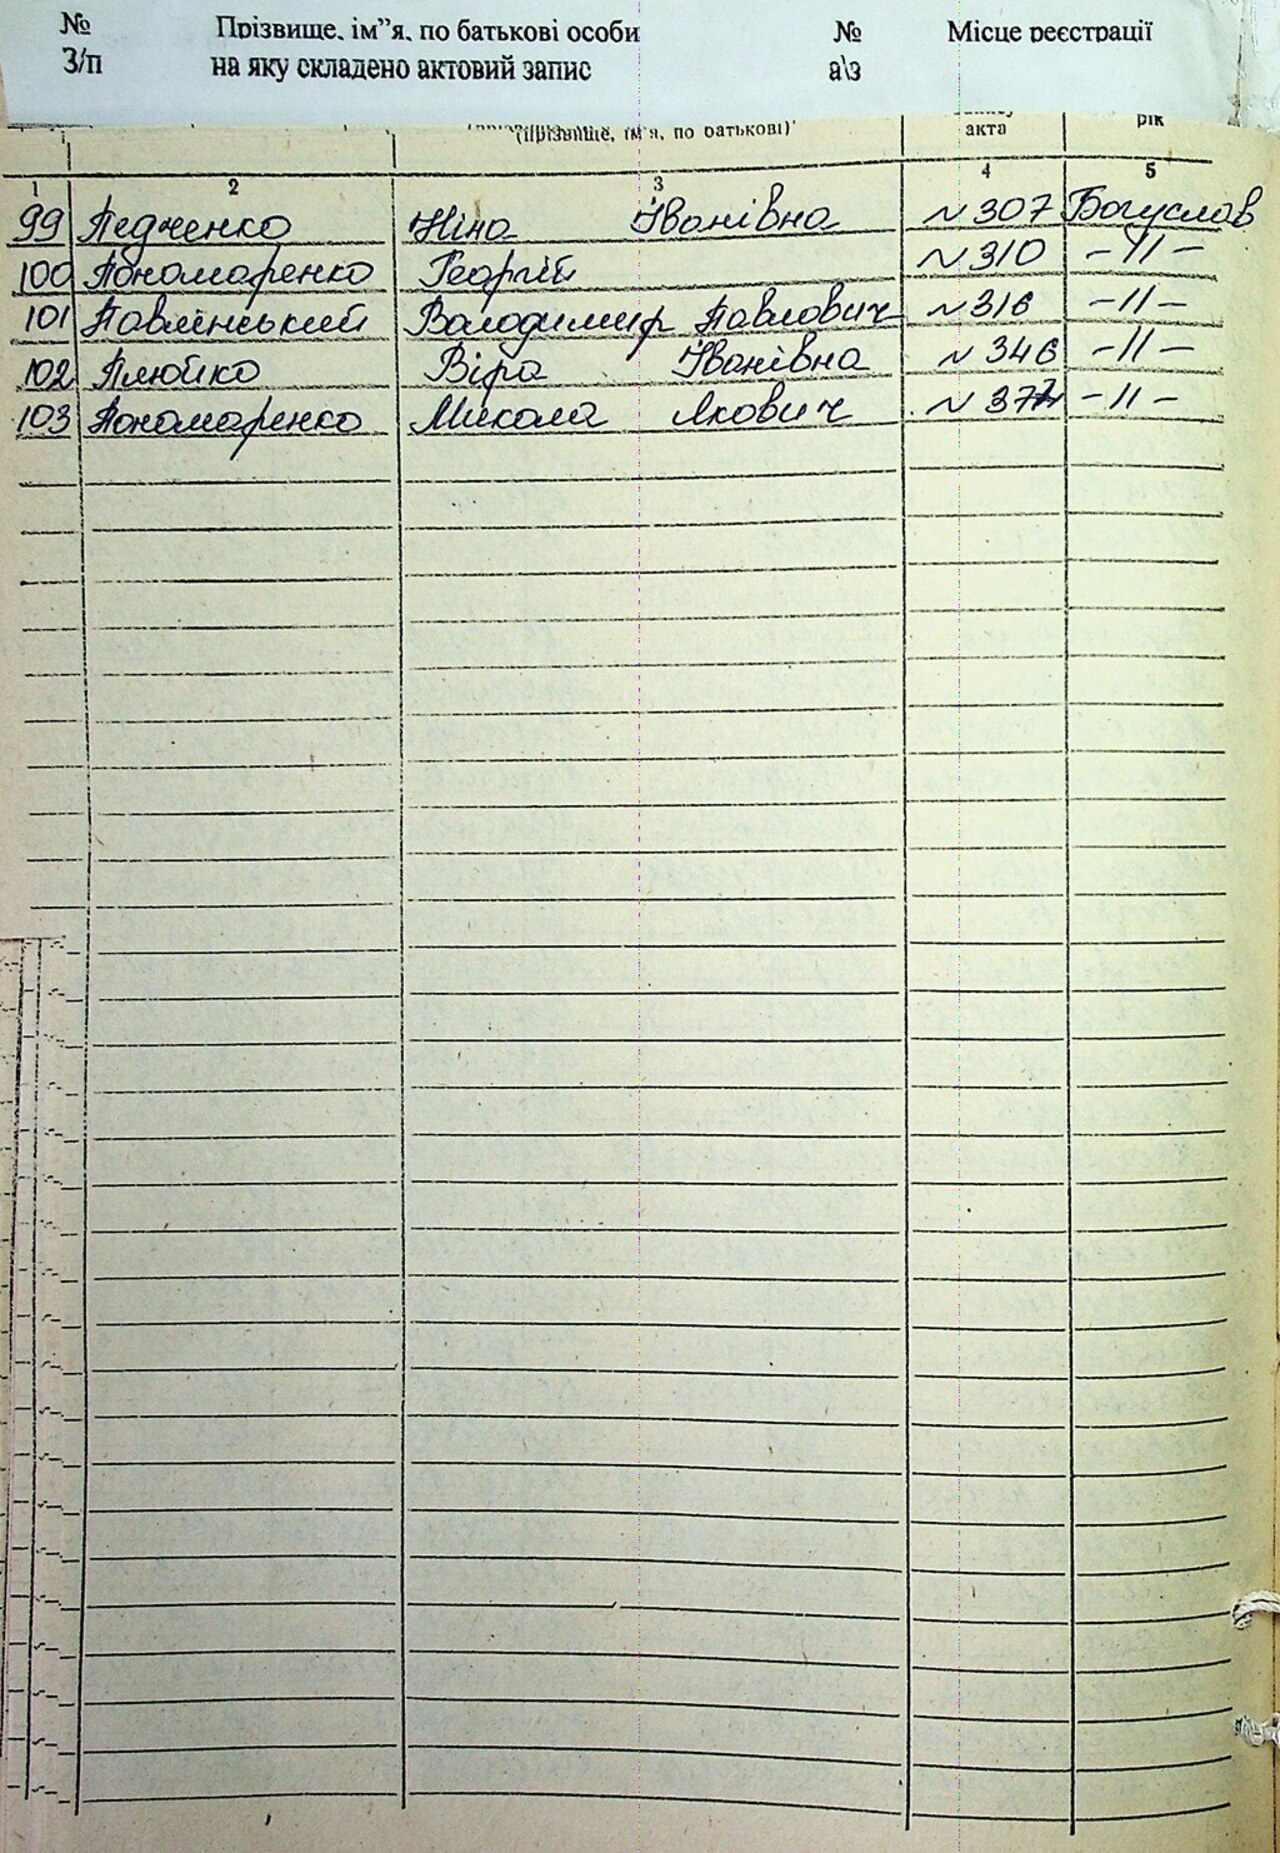 № Прізвище, ім”я, по батькові особи № Місце реєстрації
З/п на яку складено актовий запис а\з
(прізвище, ім'я, по батькові) акта рік
1 2 3 4 5
99 Педченко Ніна Іванівна №307 Богуслав
100 Пономаренко Георгій №310 -11-
101 Павлінський Володимир Павлович №316 -11-
102 Плюйко Віра Іванівна №346 -11-
103 Пономаренко Микола Якович №377 -11-